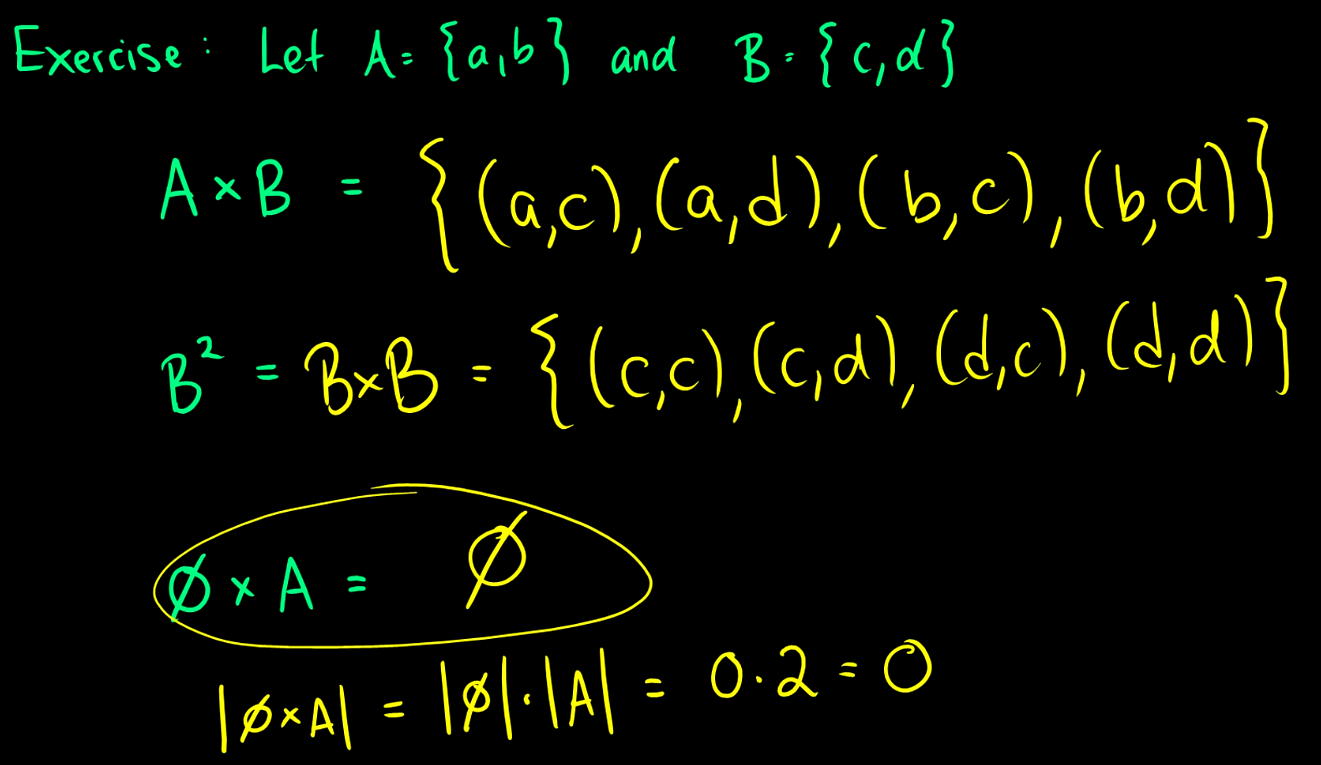 Exercise: Let A = {a,b} and B = {c,d}
A × B = {(a,c), (a,d), (b,c), (b,d)}
B² = B×B = {(c,c), (c,d), (d,c), (d,d)}
∅ × A = ∅
|∅×A| = |∅|·|A| = 0·2 = 0